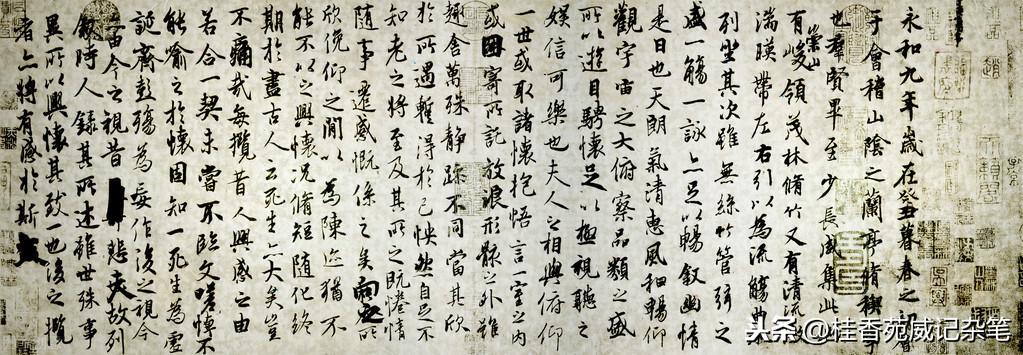 永和九年歲在癸丑暮春之初會
于會稽山陰之蘭亭脩禊事
也羣賢畢至少長咸集此
有崇山峻領茂林脩竹又有清流激
湍暎帶左右引以為流觴曲
列坐其次雖無絲竹管弦之
盛一觴一詠亦足以暢敘幽情
是日也天朗氣清惠風和暢仰
觀宇宙之大俯察品類之盛
所以遊目騁懷足以極視聽之
娛信可樂也夫人之相與俯仰
一世或取諸懷抱悟言一室之內
或因寄所託放浪形骸之外雖
趣舍萬殊靜躁不同當其欣
於所遇暫得於己怏然自足不
知老之將至及其所之既惓情
隨事遷感慨係之矣向之所
欣俛仰之閒以為陳迹猶不
能不以之興懷況脩短隨化終
期於盡古人云死生亦大矣豈
不痛哉每攬昔人興感之由
若合一契未嘗不臨文嗟悼不
能喻之於懷固知一死生為虛
誕齊彭殤為妄作後之視今
亦由今之視昔悲夫故列
敘時人錄其所述雖世殊事
異所以興懷其致一也後之攬
者亦將有感於斯文
头条@桂香苑威记杂笔